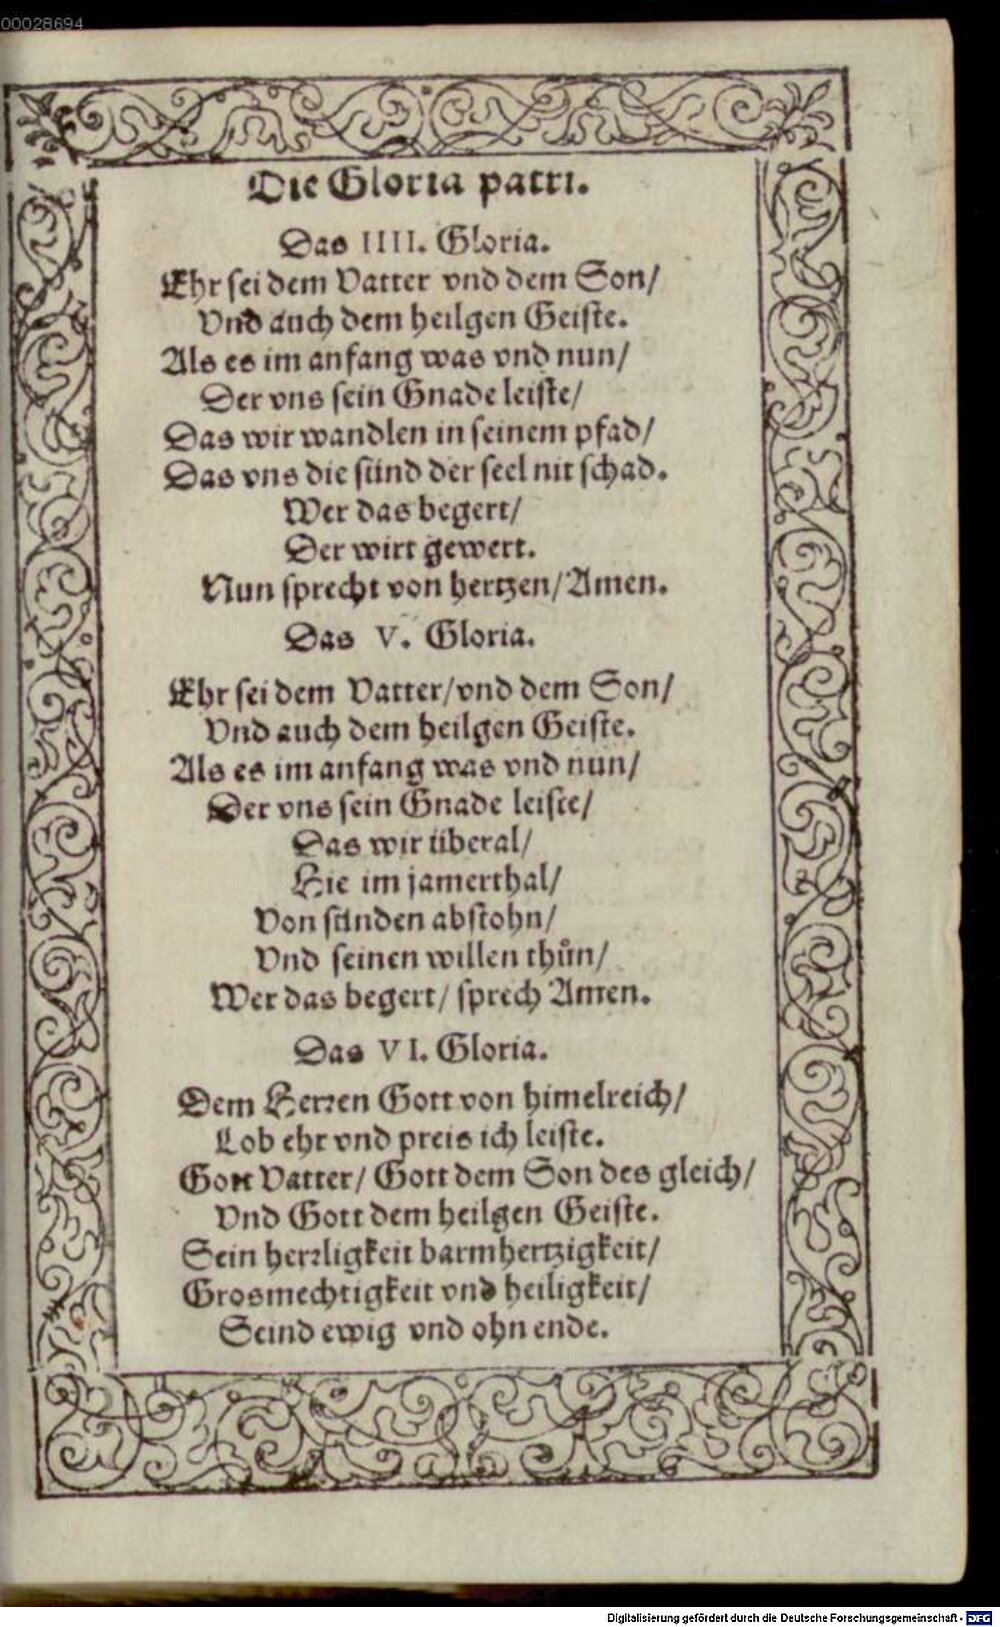 00028694
Die Gloria patri.
Das IIII. Gloria.
Ehr sei dem Vatter vnd dem Son/
Vnd auch dem heilgen Geiste.
Als es im anfang was vnd nun/
Der vns sein Gnade leiste/
Das wir wandlen in seinem pfad/
Das vns die sünd der seel nit schad.
Wer das begert/
Der wirt gewert.
Nun sprecht von hertzen/ Amen.
Das V. Gloria.
Ehr sei dem Vatter/ vnd dem Son/
Vnd auch dem heilgen Geiste.
Als es im anfang was vnd nun/
Der vns sein Gnade leiste/
Das wir überal/
Hie im jamerthal/
Von sünden abstohn/
Vnd seinen willen thůn/
Wer das begert/ sprech Amen.
Das VI. Gloria.
Dem Herren Gott von himelreich/
Lob ehr vnd preis ich leiste.
Gott Vatter/ Gott dem Son des gleich/
Vnd Gott dem heilgen Geiste.
Sein herrligkeit barmhertzigkeit/
Grosmechtigkeit vnd heiligkeit/
Seind ewig vnd ohn ende.
Digitalisierung gefördert durch die Deutsche Forschungsgemeinschaft - DFG